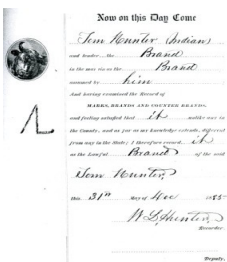 Now on this Day Come
Tom Hunter (Indian)
and tender the Brand
to the use via as the Brand
assumed by him
And having examined the Record of
MARKS, BRANDS AND COUNTER BRANDS,
and feeling satisfied that it unlike any in
the County, and as far as my knowledge extends, different
from any in the State; I therefore record it
as the Lawful Brand of the said
Tom Hunter
this 31st day of 185
W. D. Hunter
Recorder.
Deputy.